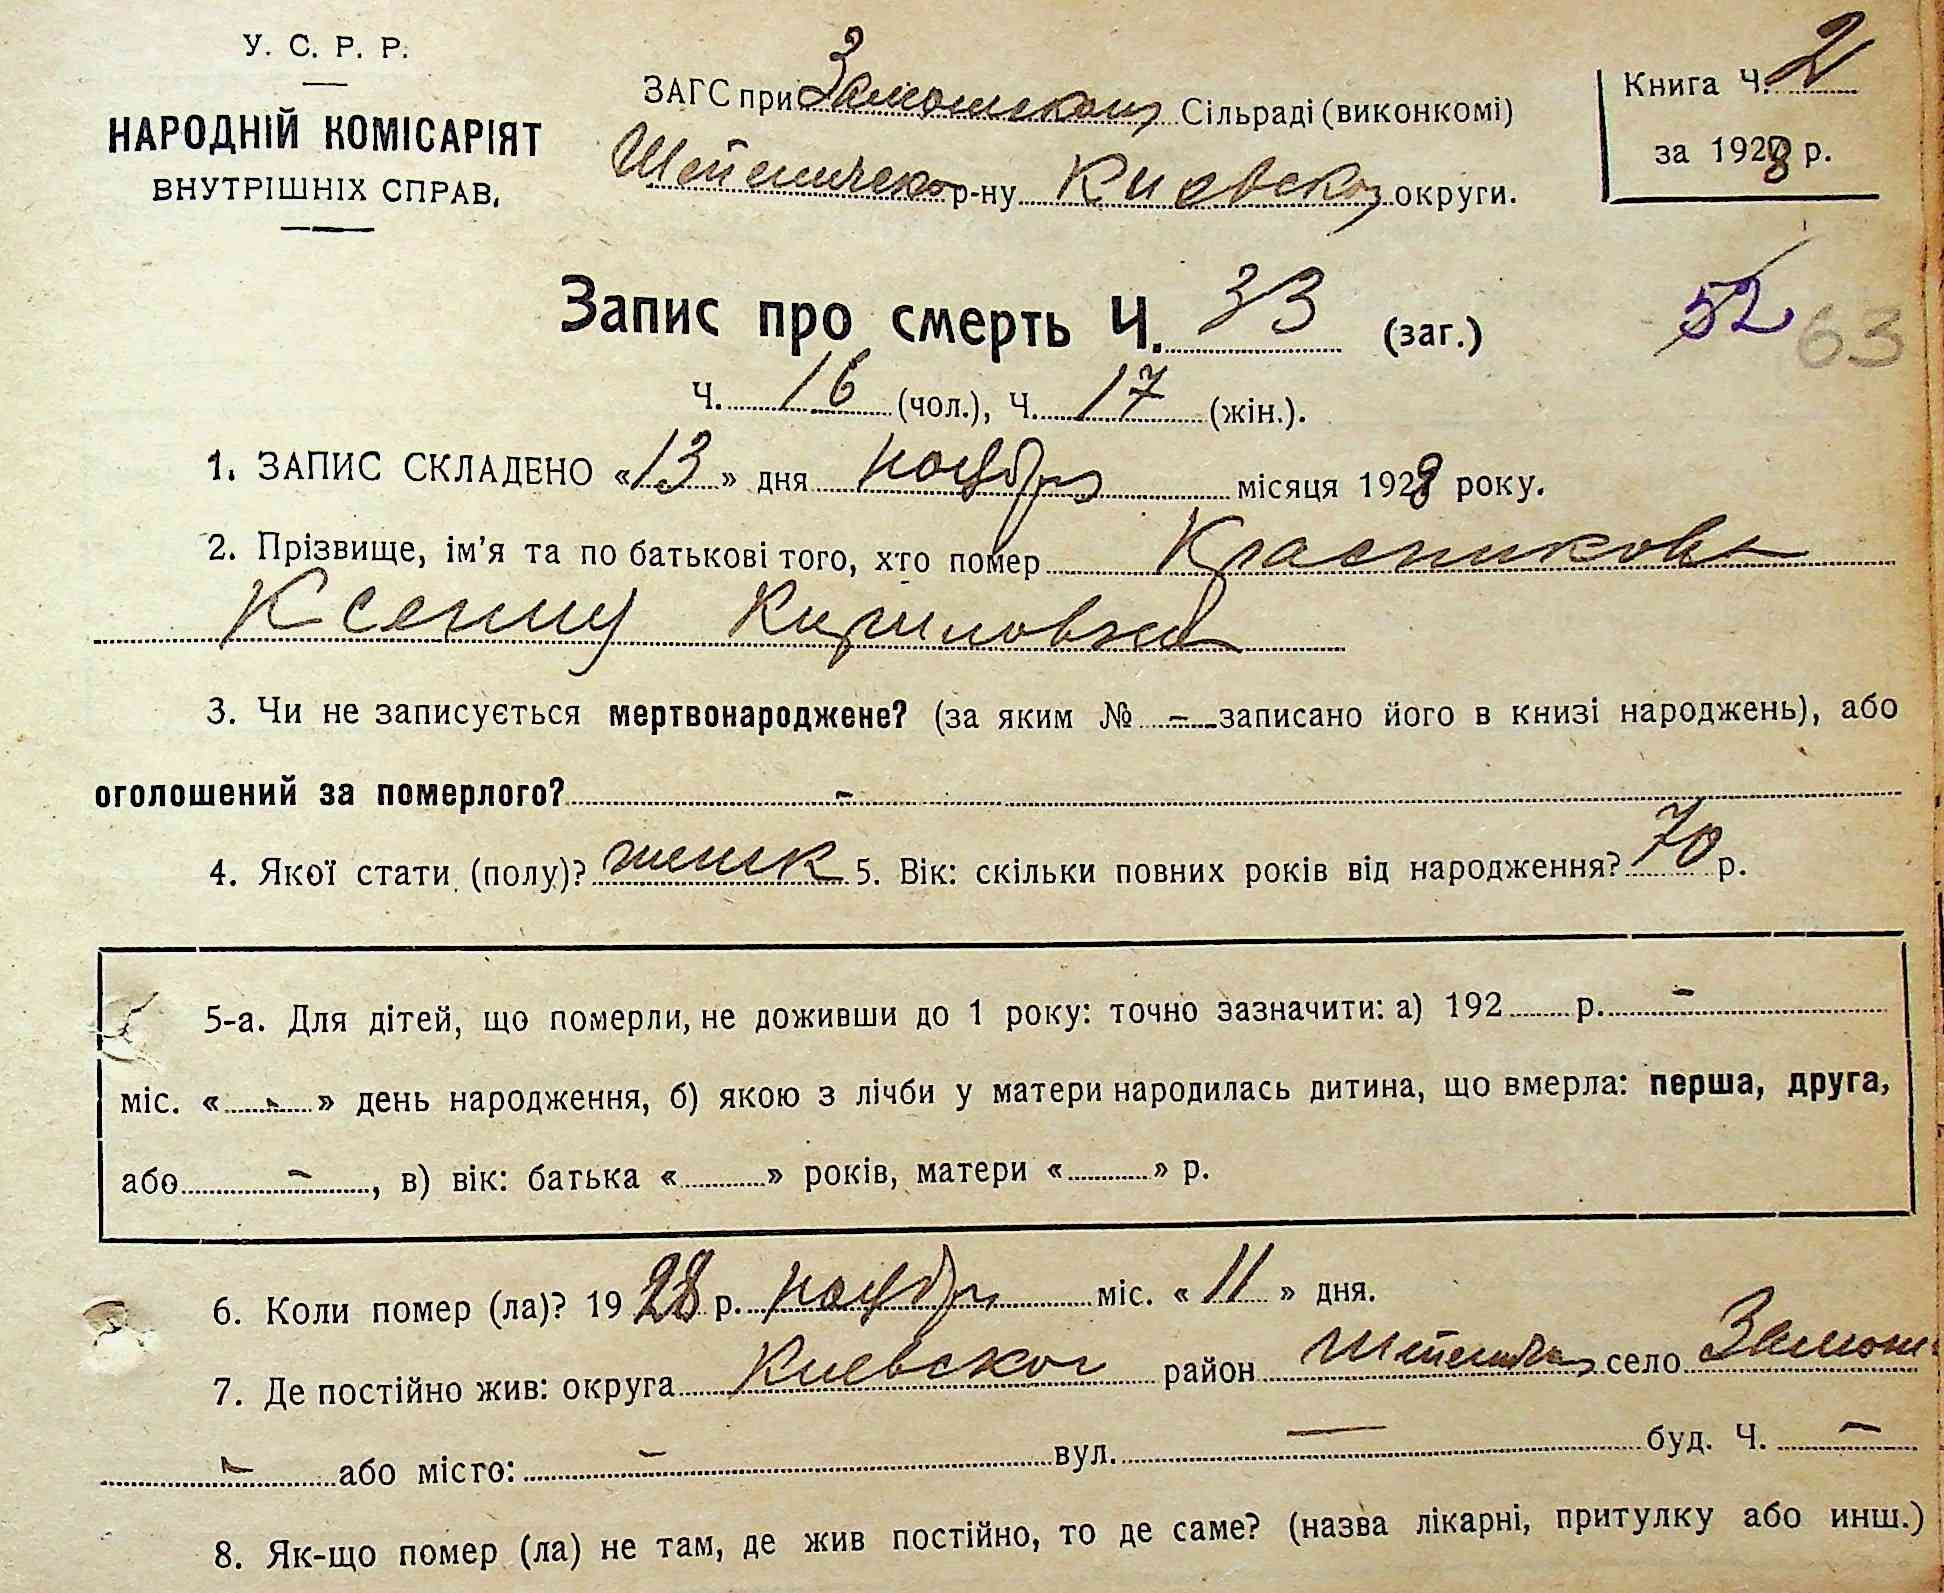 У. С. Р. Р.
НАРОДНІЙ КОМІСАРІЯТ
ВНУТРІШНІХ СПРАВ.
ЗАГС при Замошском Сільраді (виконкомі)
р-ну Киевской округи.
Книга Ч. 2
за 1928 р.
Запис про смерть Ч. 33 (заг.)
52 63
Ч. 16 (чол.), Ч. 17 (жін.).
1. ЗАПИС СКЛАДЕНО «13» дня ноября місяця 1928 року.
2. Прізвище, ім'я та по батькові того, хто помер Красникова
Ксению Кириловна
3. Чи не записується мертвонароджене? (за яким № - записано його в книзі народжень), або
оголошений за померлого? -
4. Якої стати (полу)? женск 5. Вік: скільки повних років від народження? 70 р.
5-а. Для дітей, що померли, не доживши до 1 року: точно зазначити: а) 192 р. -
міс. « - » день народження, б) якою з лічби у матери народилась дитина, що вмерла: перша, друга,
або - , в) вік: батька « » років, матери « » р.
6. Коли помер (ла)? 1928 р. ноября міс. «11» дня.
7. Де постійно жив: округа Киевской район село Замош
- або місто: - вул. - буд. Ч. -
8. Як-що помер (ла) не там, де жив постійно, то де саме? (назва лікарні, притулку або инш.)